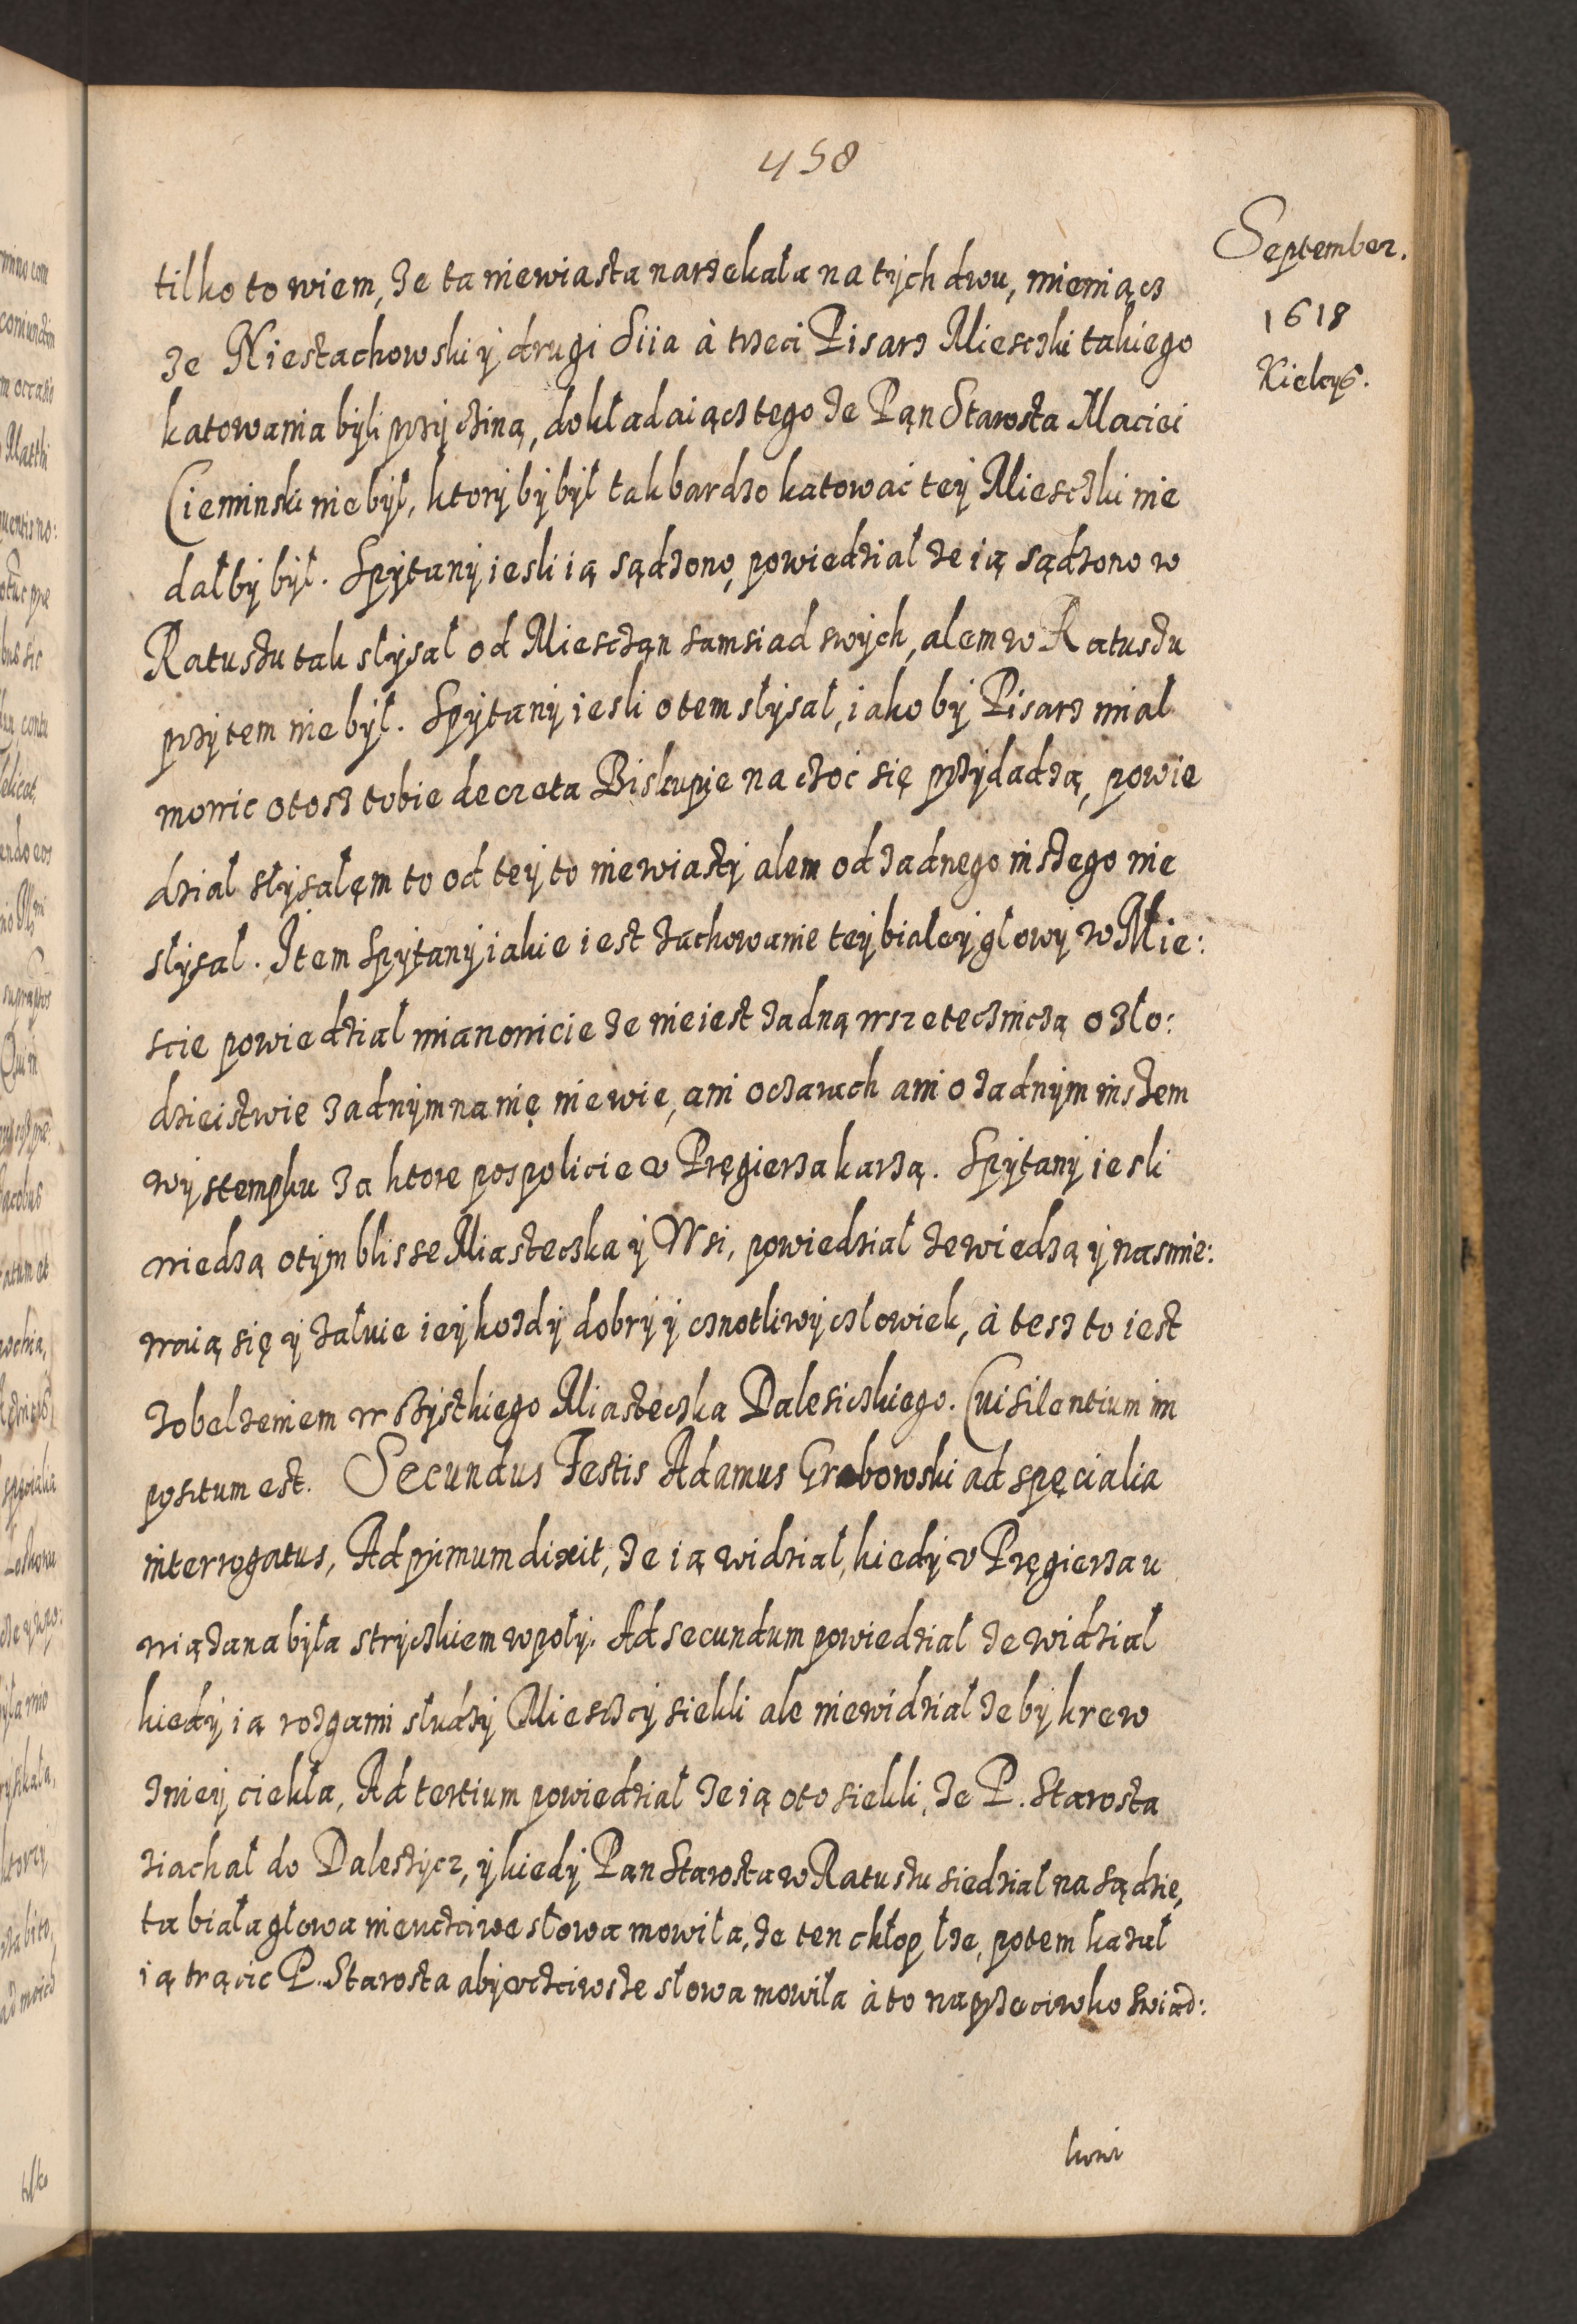 458
September.
1618
Kielcys.
tilko to wiem, że ta niewiasta narzekała na tych dwu, mieniącz
że Niestachowski ÿ drugi Siia à trzeci Pisarz Mieisczki takiego
katowania byli przyczina, dokładaiącz tego że Pąn Starosta Maciei
Cieminski nie był, ktory by był tak bardzo katować teÿ Miesczki nie
dał by był. Spytany iesli ią sądzono, powiedział że ią sądzono w
Ratuszu tak słysał od Miesczan samsiad swych, alem w Ratuszu
przytem nie był. Spytany iesli o tem słysał, iako by Pisarz miał
mowic otosz tobie decreta Biskupie na czoć się przydadzą, powie
dział słysałęm to od teÿ to niewiasty alem od żadnego inszego nie
słysał. Item Spytany iakie iest zachowanie teÿ białeÿ głowy w Mie:
scie powiedział mianowicie że nie iest żadną wszeteczniczą o zło:
dzieistwie żadnym na nię nie wie, ani o czarach ani o żadnym inszem
wystempku za ktore pospolicie v Pręgierza karzą. Spytany iesli
wiedzą otym blissze Miasteczka ÿ Wsi, powiedział że wiedzą ÿ nasmie:
waią się ÿ załuie ieÿ kożdy dobry ÿ cznotliwy człowiek, à tesz to iest
zobelżeniem wszystkiego Miasteczka Dalesickiego. Cui silentium im
positum est. Secundus Testis Adamus Grabowski ad spęcialia
interrogatus, Ad primum dixit, że ią widział, kiedy v Pręgierza u
wiązana była stryczkiem wpoły. Ad secundum powiedział że widział
kiedy ią rozgami słudzy Miesczcy siekli ale niewidział żeby krew
z nieÿ ciekła, Ad tertium powiedział że ią oto siekli, że P. Starosta
ziachał do Daleszycz, ÿ kiedy Pan Starosta w Ratuszu siedział na sądzie,
ta biała głowa nieucziwe słowa mowiła, że ten chłop łże, potem kazał
ią trącic P. Starosta aby vczciwsze słowa mowiła à to naprzeciwko swiad:
kowi